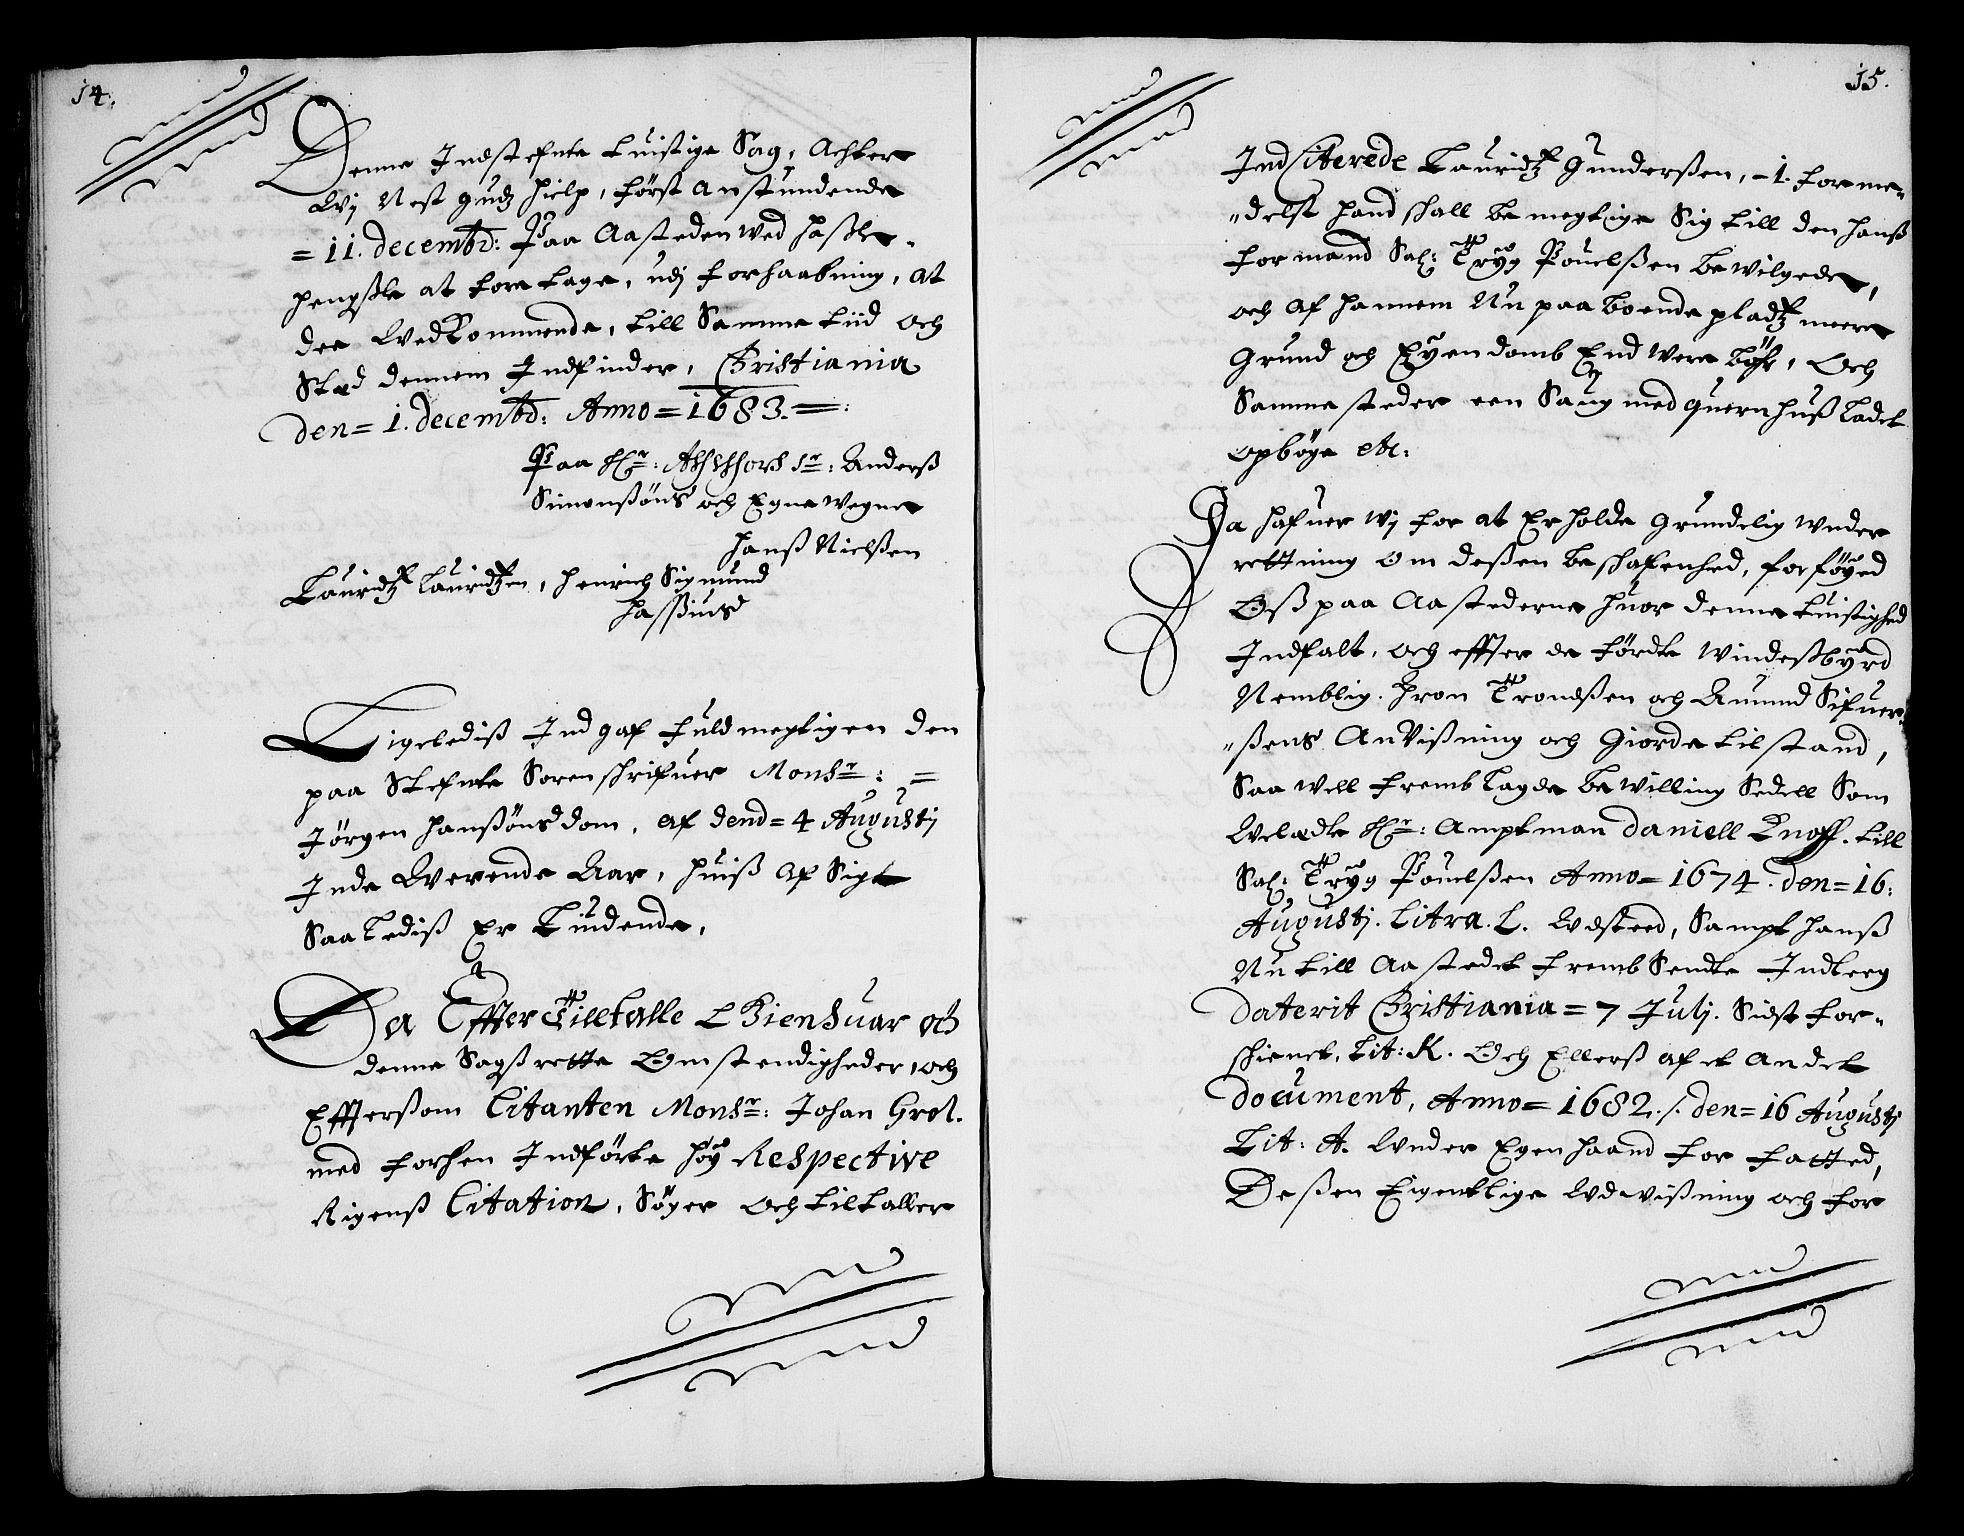 14.
Denne Indstefnte tuistige Sag, Achter
Wj Nest gudz hielp, först anstundende
= 11. decembr: Paa Aasteden wed Haszle-
hengszle at foretage, udj forhaabning, at
dee Wedkommende, till Samme tiid och
Sted dennem Indfinder, Christiania
den = 1. decembr: Anno = 1683. =:
Paa Hr: Assessors Sr: Anderss
Simenssöns och Egne wegne
Hanss Nielssen
Lauridtz Lauridtzen, Henrich Sigmund
Hassius
Ligelediss Indgaf fuldmegtigen den
paa Stefnte Sorenschrifuer Monsr: =
Jörgen Hanssöns dom, af dend = 4 Augustj
Inde Werende Aar, huiss af Sigte
Saalediss Er Liudende,
Da Effter Tilltalle Giensuar och
denne Sagss rette Omstendigheder, och
Efftersom Citanten Monsr: Johan Grel.
med forhen Indförte höy Respective
Rigenss Citation, Söger och tiltaller
15.
Indciterede Lauridtz Gunderssen, - 1. forme-
"delst hand schall bemegtige Sig till den hanss
formand Sal: Tryg Pouelssen bewilgede,
och af hannem Nu paaboende pladtz meere
Grund och Eyendomb End were bör, Och
Sammesteder een Saug med quernhuss ladet
opböge etc:
Da hafuer wj for at Erholde grundelig wnder
rettning om dessen beschafenhed, forföyed
Oss paa Aastederne huor denne tuistighed
Indfalt, och effter de förde windessbyrd
Nemblig. Iron Trondssen och Amund Sifuer-
"ssens Anvissning och Giorde tilstand,
Saa well fremblagde bewilling Sedell Som
Weledle Hr: Amptman Daniell Knoff. till
Sal: Tryg Pouelssen Anno = 1674. den = 16:
Augustj. Litra. L. Wdsteed, Sampt hanss
Nu till Aastedet frembSendte Indleg
daterit Christiania = 7 Julj. Sidst for-
schienet, Lit: K. Och Ellerss af et andet
document, Anno = 1682 ./. den = 16 Augustj
Lit: A. Wnder Egen haand forfatted,
Dessen Eigentlige Wdwissning och for